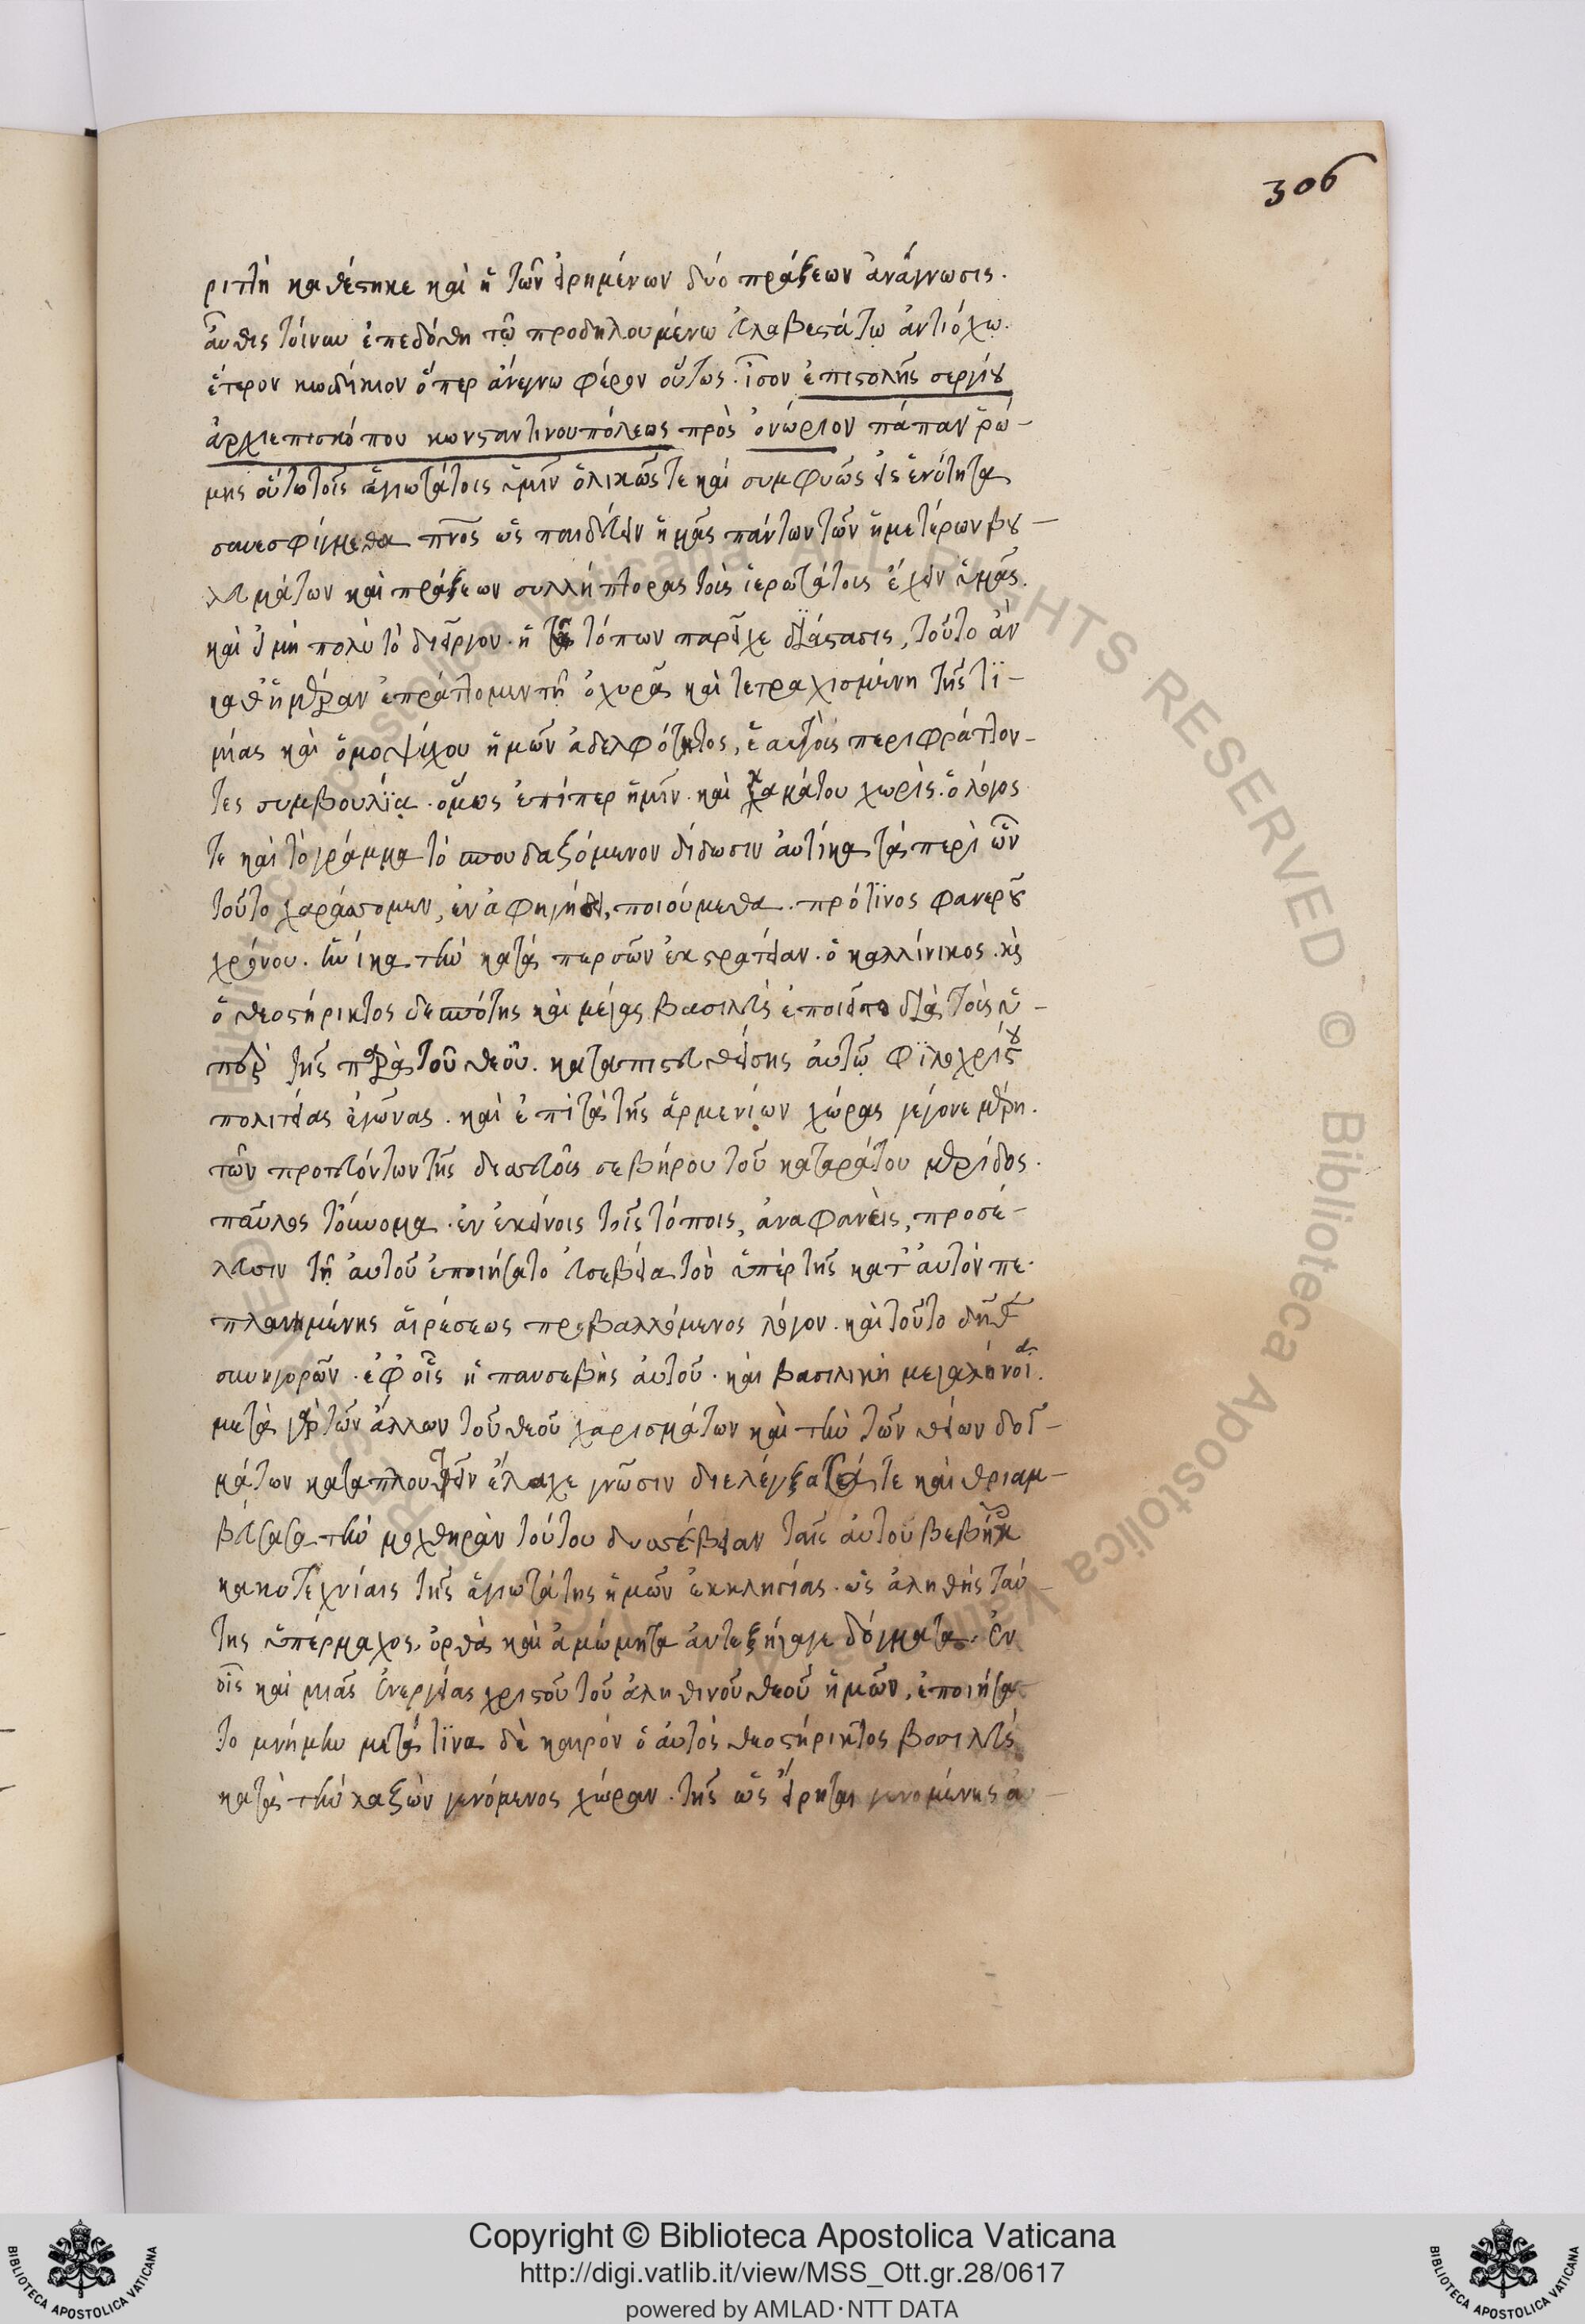 306
ριττὴ καθέστηκε καὶ ἡ τῶν εἰρημένων δύο πράξεων ἀνάγνωσις.
αὖθις τοίνυν ἐπεδόθη τῷ προδηλουμένω εὐλαβεστάτω ἀντιόχω.
ἕτερον κωδίκιον ὅπερ ἀνέγνω φέρον οὕτως. ἴσον ἐπιστολῆς σεργίου
ἀρχιεπισκόπου κωνσταντινουπόλεως πρὸς ὁνώριον πάπαν ῥώ-
μης οὕτω τοῖς ἁγιωτάτοις ὑμῖν ὁλικῶς τε καὶ συμφυῶς εἰς ἑνότητα
συνεσφίγμεθα πνος ὡς παιδεύειν ἡμᾶς πάντων τῶν ἡμετέρων βου-
λευμάτων καὶ πράξεων συλλήπτορας τοῖς ἱερωτάτοις ἔχειν ὑμᾶς.
καὶ εἰ μὴ πολὺ τὸ διεῖργον. ἡ τῶν τόπων παρεῖχε διάστασις, τοῦτο ἂν
καθ' ἡμέραν ἐπράττομεν τῇ ὀχυρᾶ καὶ τετραχισμένη τῆς τι-
μίας καὶ ὁμοψύχου ἡμῶν ἀδελφότητος, ἑαυτοὺς περιφράττον-
τες συμβουλία. ὅμως ἐπείπερ ἡμῖν. καὶ καμάτου χωρὶς. ὁ λόγος
τε καὶ τὸ γράμμα τὸ σπουδαζόμενον δίδωσιν αὐτίκα τὰ περὶ ὧν
τοῦτο χαράττομεν, ἐν ἀφηγήσει, ποιούμεθα. πρό τινος φανεροῦ
χρόνου. ἡνίκα τὴν κατὰ περσῶν ἐκστρατείαν. ὁ καλλίνικος. καὶ
ὁ θεοστήρικτος δεσπότης καὶ μέγας βασιλεὺς ἐποιεῖτο διὰ τοὺς ὑ-
πὲρ τῆς παρὰ τοῦ θεοῦ. καταπιστευθείσης αὐτῷ φιλοχρίστου
πολιτείας ἀγῶνας. καὶ ἐπὶ τὰ τῆς ἀρμενίων χώρας γέγονε μέρη.
τῶν πρωτευόντων τῆς δυσσεβοῦς σεβήρου τοῦ καταράτου μερίδος.
παῦλος τοὔνομα. ἐν ἐκείνοις τοῖς τόποις, ἀναφανεὶς, προσέ-
λευσιν τῇ αὐτοῦ ἐποιήσατο εὐσεβεία τὸν ὑπὲρ τῆς κατ' αὐτὸν πε-
πλανημένης αἱρέσεως προβαλλόμενος λόγον. καὶ τοῦτο δῆθεν
συνηγορῶν. ἐφ' οἷς ἡ πανσεβὴς αὐτοῦ. καὶ βασιλικὴ μεγαλόνοια.
μετὰ γὰρ τῶν ἄλλων τοῦ θεοῦ χαρισμάτων καὶ τὴν τῶν θείων δογ-
μάτων καταπλουτεῖν ἔλαχε γνῶσιν διελέγξασά τε καὶ θριαμ-
βεύσασα τὴν μοχθηρὰν τούτου δυσσέβειαν ταῖς αὐτοῦ βεβήλοις
κακοτεχνίαις τῆς ἁγιωτάτης ἡμῶν ἐκκλησίας. ὡς ἀληθὴς ταύ-
της ὑπέρμαχος. ὀρθὰ καὶ ἀμώμητα ἀντεξήγαγε δόγματα. ἐν
οἷς καὶ μιᾶς ἐνεργείας χριστοῦ τοῦ ἀληθινοῦ θεοῦ ἡμῶν, ἐποιήσα-
το μνήμην μετά τινα δὲ καιρόν ὁ αὐτὸς θεοστήρικτος βασιλεὺς
κατὰ τὴν λαζῶν γενόμενος χώραν. τῆς ὡς εἴρηται γενομένης αὐ-
Copyright © Biblioteca Apostolica Vaticana
http://digi.vatlib.it/view/MSS_Ott.gr.28/0617
powered by AMLAD·NTT DATA
BIBLIOTECA APOSTOLICA VATICANA
BIBLIOTECA APOSTOLICA VATICANA